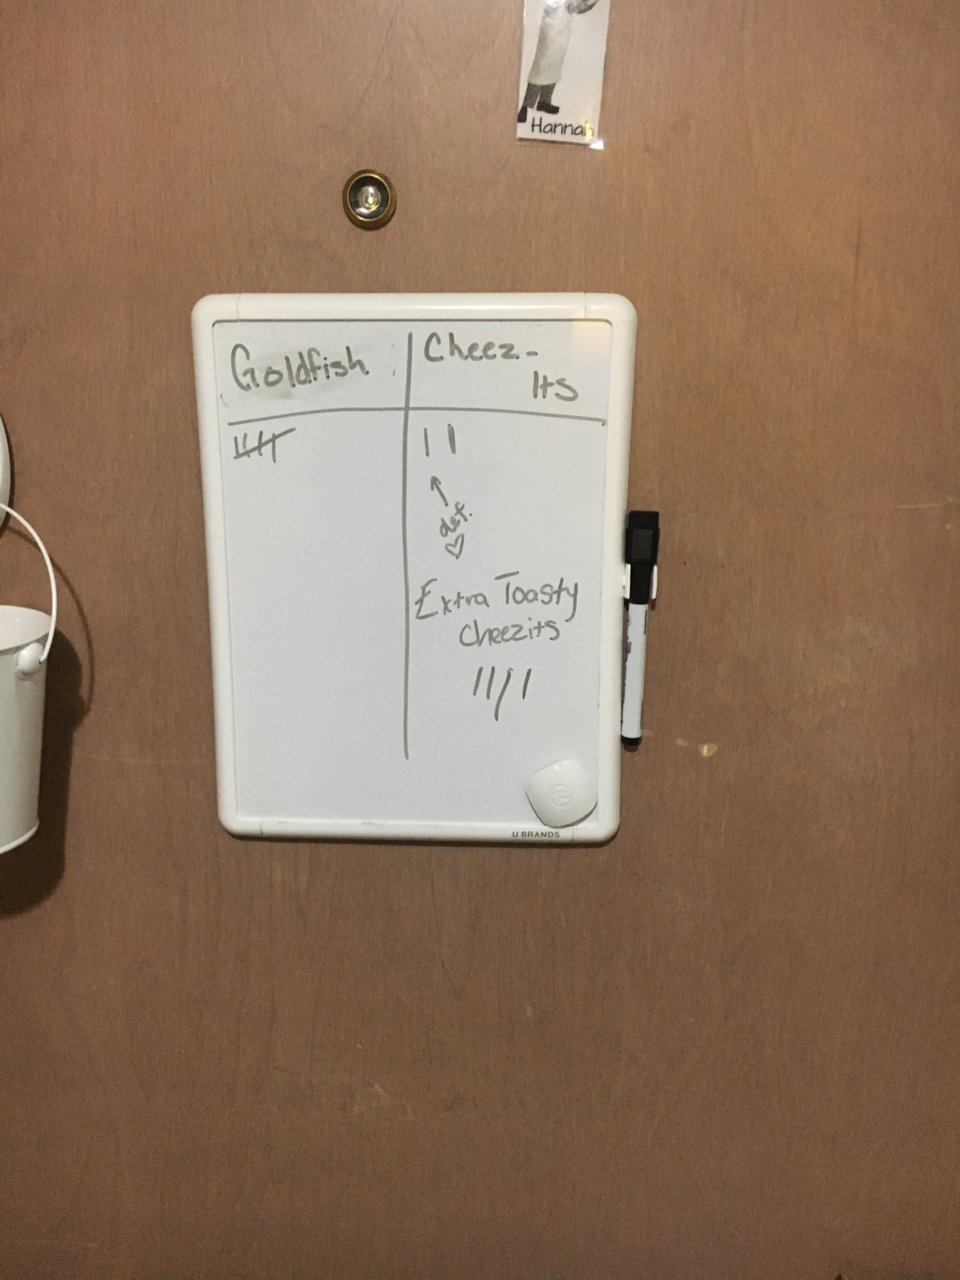 Hannah
Goldfish
Cheez-
Its
def.
Extra Toasty
Cheezits
U BRANDS